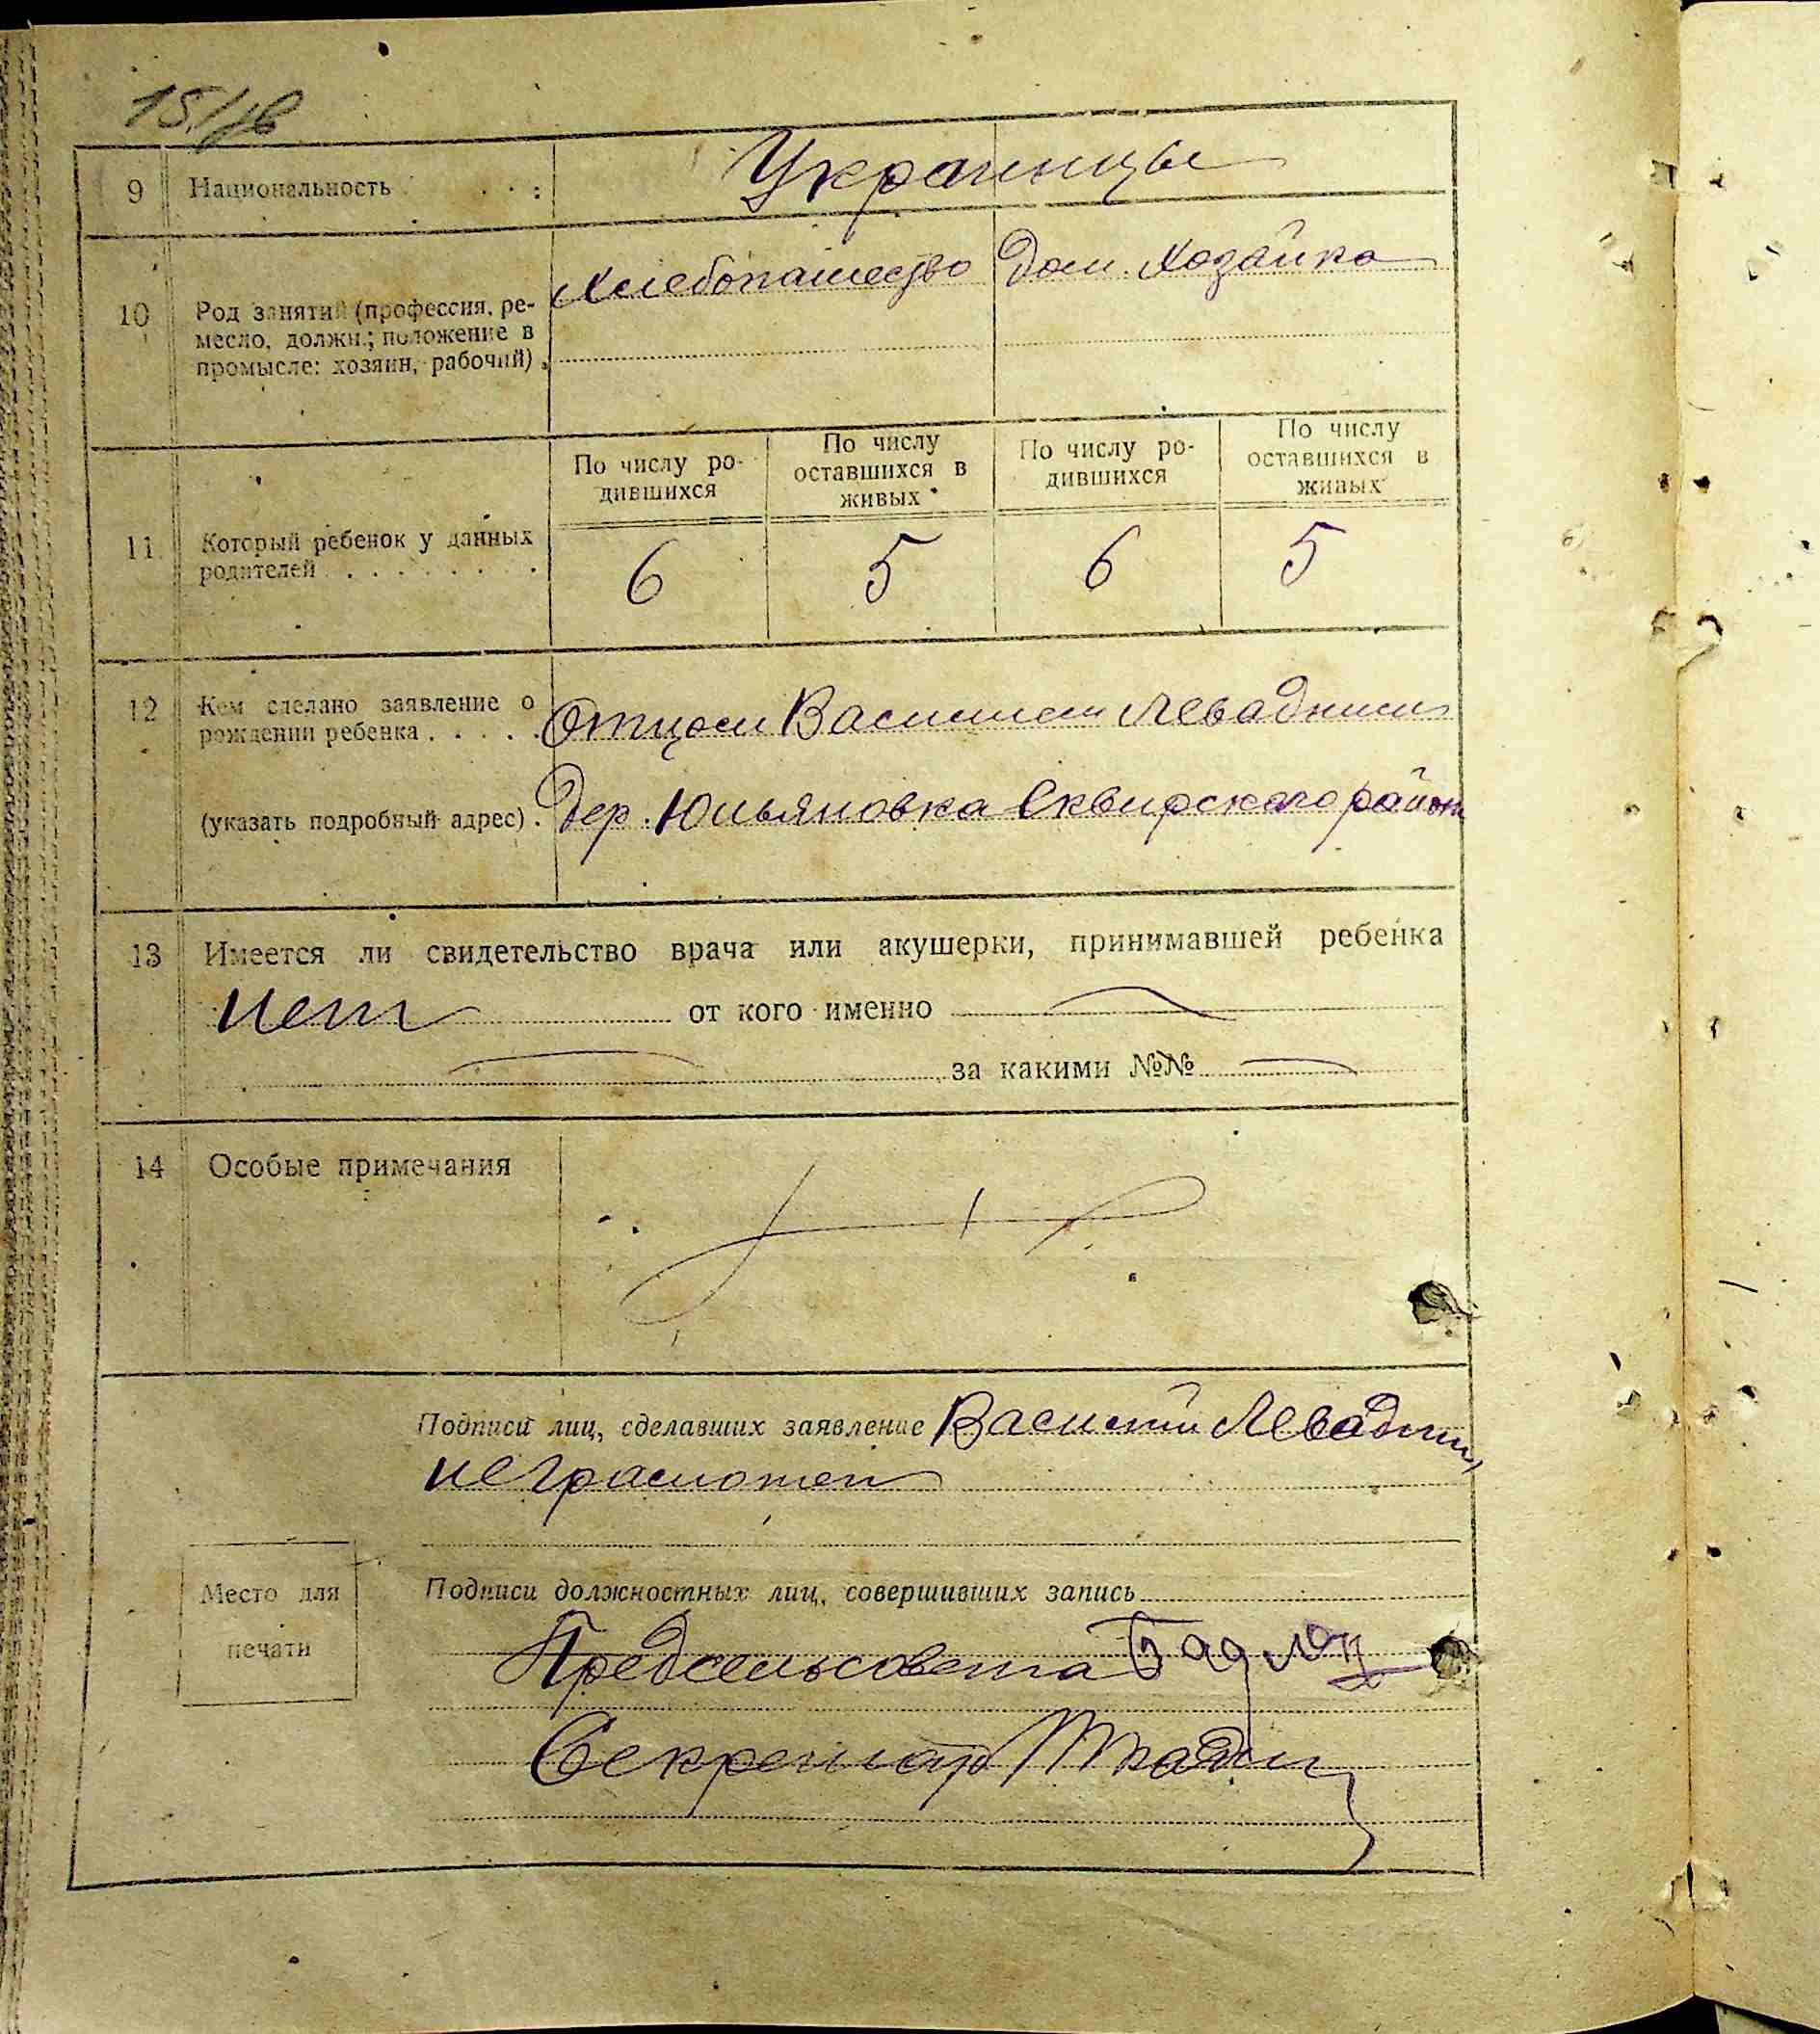 9 Национальность . . . : Украинцы
10 Род занятий (профессия, ре-
месло, должн.; положение в
промысле: хозяин, рабочий) .
Хлебопашество
Дом. Хозайка
11 Который ребенок у данных
родителей . . . . . . . .
По числу ро-
дившихся
По числу
оставшихся в
живых
По числу ро-
дившихся
По числу
оставшихся в
живых
6 5 6 5
12 Кем сделано заявление о
рождении ребенка . . . . .
Отцом Василием Левадним
(указать подробный адрес) . Дер. Юльяновка Сквирского района
13 Имеется ли свидетельство врача или акушерки, принимавшей ребенка
нет от кого именно
за какими №№
14 Особые примечания
Подписи лиц, сделавших заявление Василий Левадний
неграмотен
Место для
печати
Подписи должностных лиц, совершивших запись
Предсельсовета
Секретарь